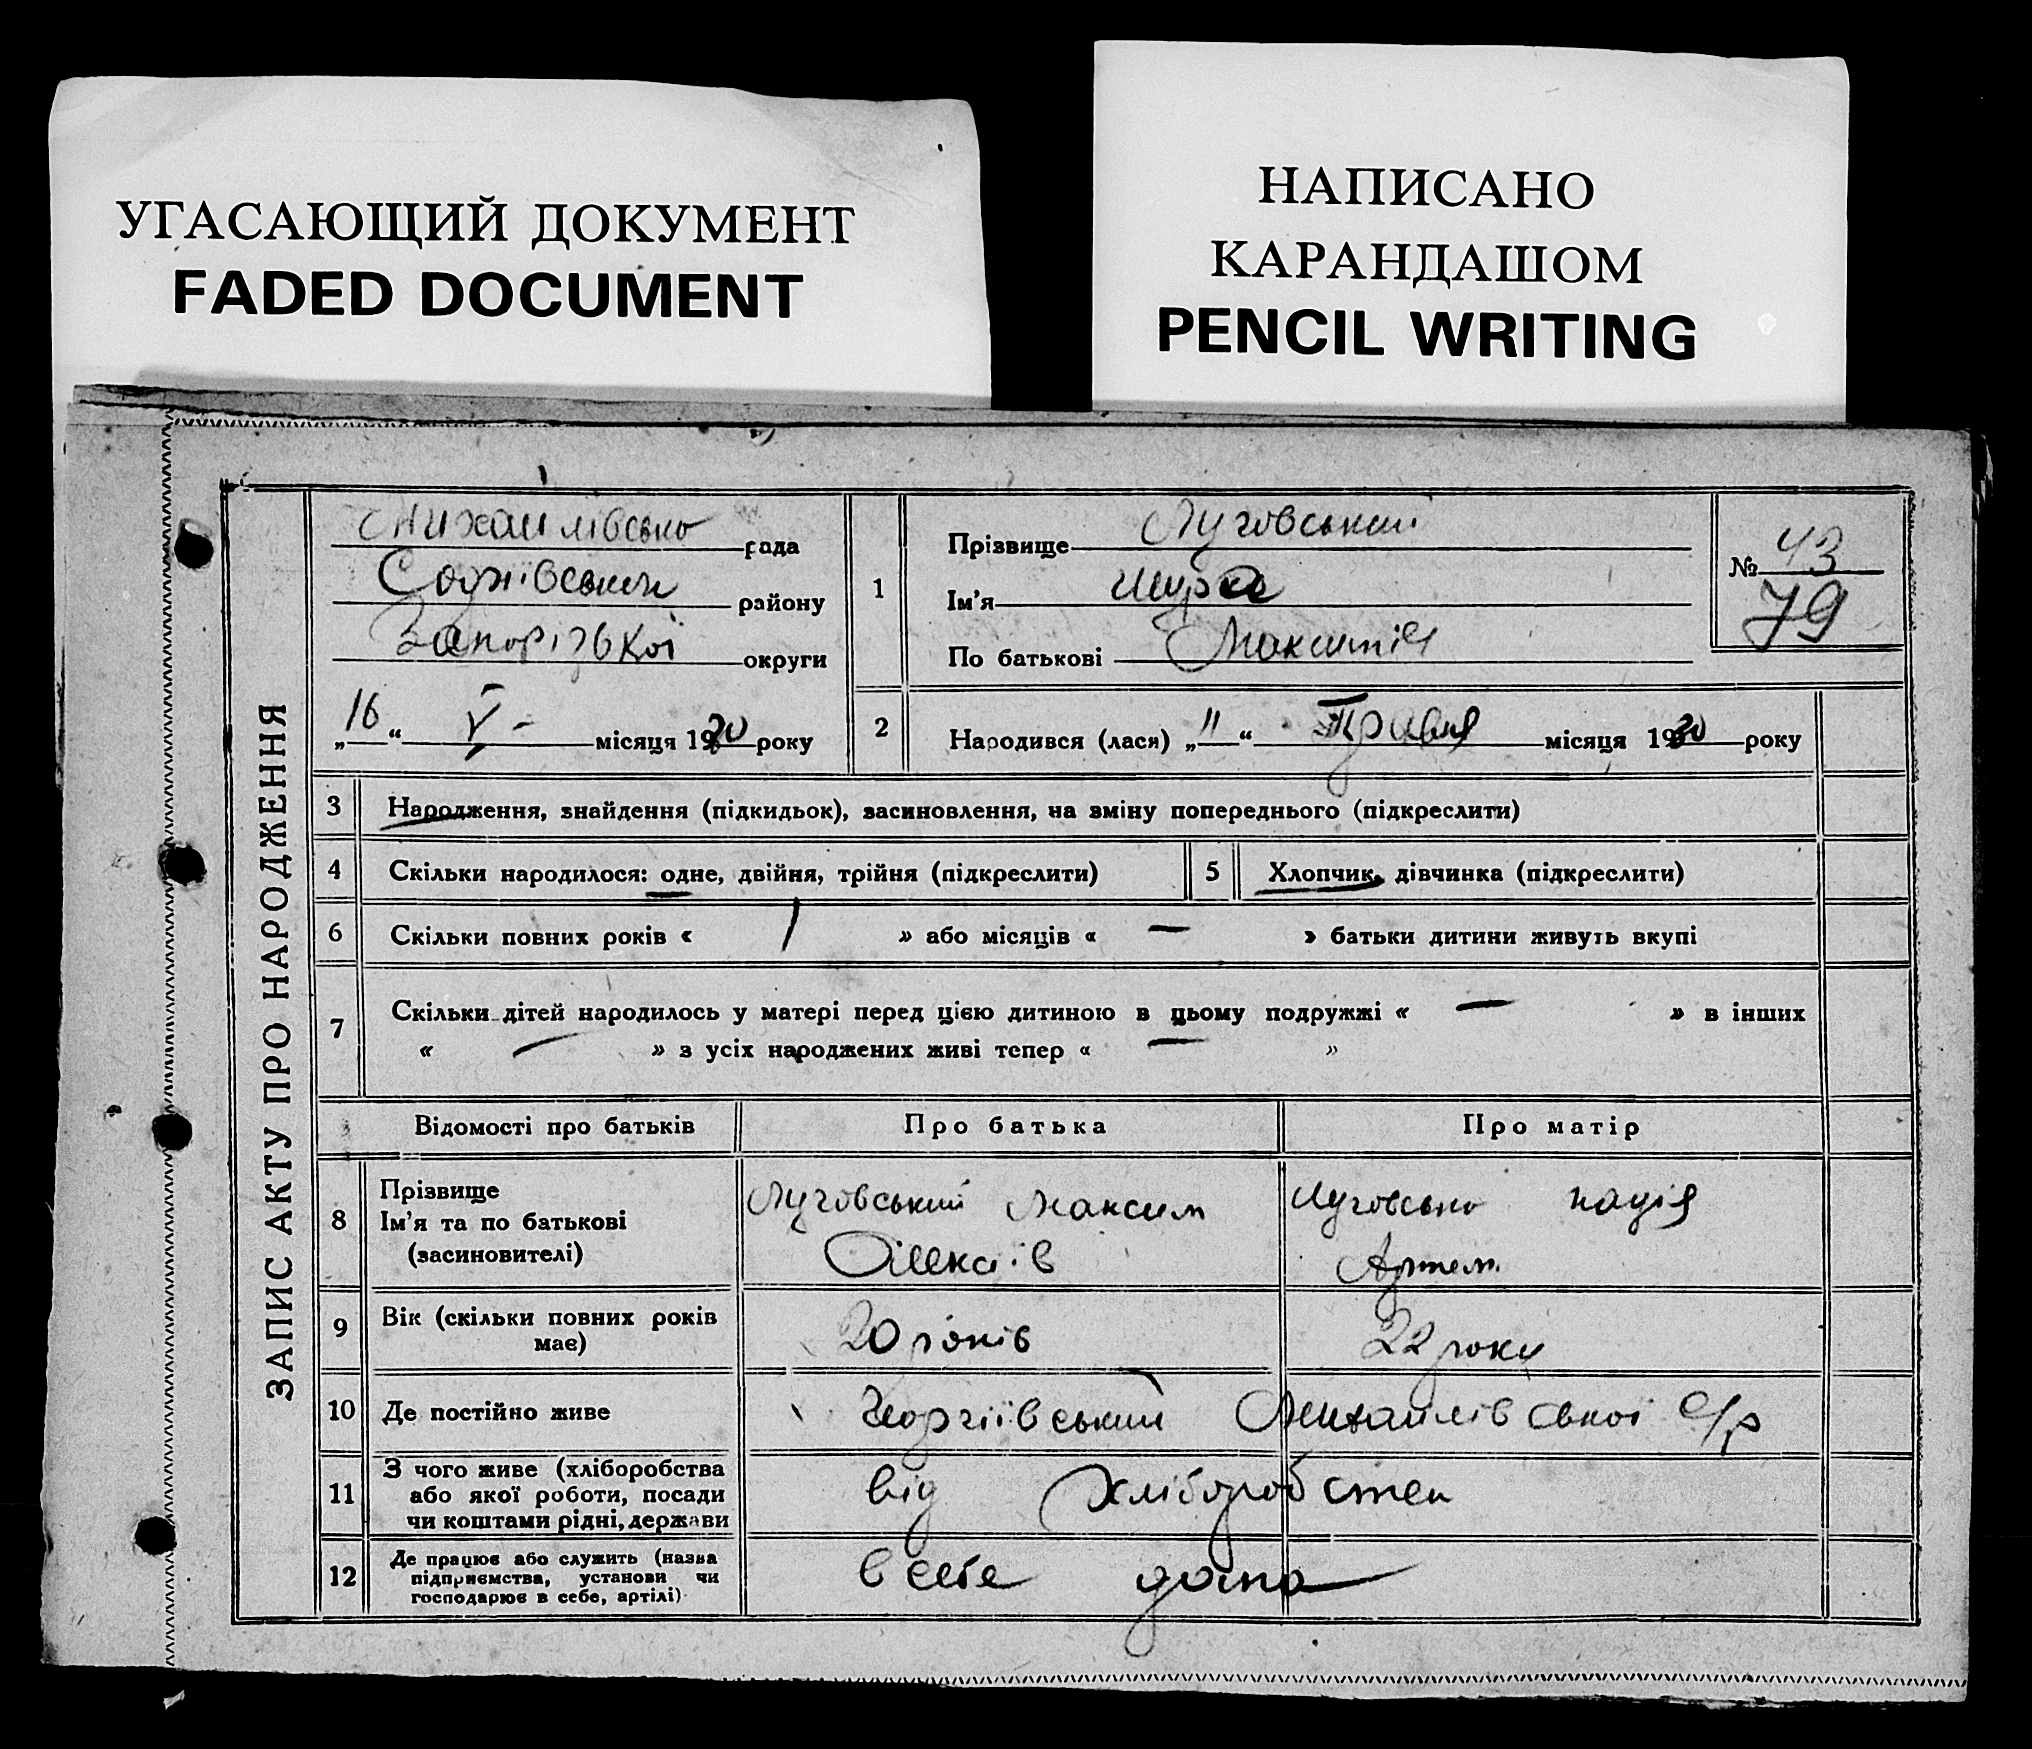 УГАСАЮЩИЙ ДОКУМЕНТ
FADED DOCUMENT
НАПИСАНО
КАРАНДАШОМ
PENCIL WRITING
ЗАПИС АКТУ ПРО НАРОДЖЕННЯ
Михайлівсько рада
району
Запорізької округи
„16“ V - місяця 1930 року
1
Прізвище Луговський
Ім'я Шура
По батькові Максимів
№ 43
79
2
Народився (лася) „11“ Травня місяця 1930 року
3 Народження, знайдення (підкидьок), засиновлення, на зміну попереднього (підкреслити)
4 Скільки народилося: одне, двійня, трійня (підкреслити) 5 Хлопчик, дівчинка (підкреслити)
6 Скільки повних років « 1 » або місяців « — » батьки дитини живуть вкупі
7 Скільки дітей народилось у матері перед цією дитиною в цьому подружжі « — » в інших
« — » з усіх народжених живі тепер « — »
Відомості про батьків Про батька Про матір
8 Прізвище
Ім'я та по батькові
(засиновителі)
Луговський Максим
Олексіїв
Луговсько Надія
Артем
9 Вік (скільки повних років
має)
20 років 22 року
10 Де постійно живе Георгіївський Михайлівської с/р
11 З чого живе (хліборобства
або якої роботи, посади
чи коштами рідні, держави
від хліборобства
12 Де працює або служить (назва
підприємства, установи чи
господарює в себе, артілі)
в себе дома